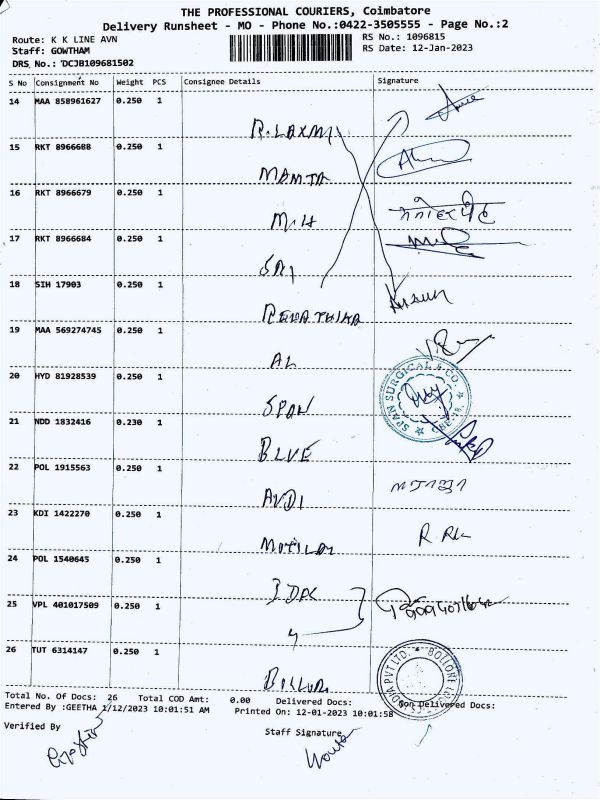 THE PROFESSIONAL COURIERS, Coimbatore
Delivery Runsheet - MO - Phone No.:0422-3505555 - Page No.:2
Route: K K LINE AVN RS No.: 1096815
Staff: GOWTHAM RS Date: 12-Jan-2023
DRS No.: DCJB109681502
S No Consignment No Weight PCS Consignee Details Signature
14 MAA 858961627 0.250 1
R.LAXMI
15 RKT 8966688 0.250 1
MAMTA
16 RKT 8966679 0.250 1
M.H
17 RKT 8966684 0.250 1
SRI
18 SIH 17903 0.250 1
19 MAA 569274745 0.250 1
AL
20 HYD 81928539 0.250 1
SPAN
SPAN SURGICAL & CO.
21 NDD 1832416 0.230 1
BLUE
22 POL 1915563 0.250 1
AVDI
23 KDI 1422270 0.250 1
MOTILAL
24 POL 1540645 0.250 1
25 VPL 401017509 0.250 1
26 TUT 6314147 0.250 1
Total No. Of Docs: 26 Total COD Amt: 0.00 Delivered Docs: Non Delivered Docs:
Entered By :GEETHA 1/12/2023 10:01:51 AM Printed On: 12-01-2023 10:01:58
Verified By Staff Signature